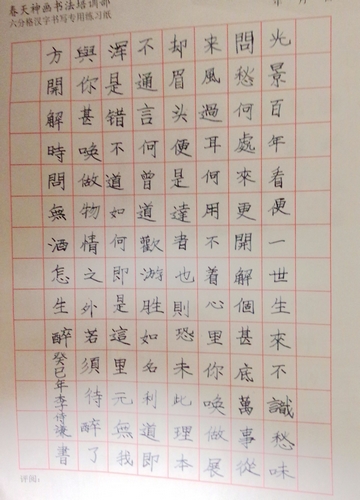 春天神画书法培训部
六分格汉字书写专用练习纸
年 月
光景百年看便一世生來不識愁味
問愁何處來更開解個甚底萬事從
來風過耳何用不着心里你喚做展
却眉头便是達者也則恐未此理本
不通言何曾道歡游勝如名利道即
渾是错不道如何即是這里元無我
與你甚喚做物情之外若須待醉了
方開解時問無酒怎生醉癸巳年李诗谦書
评阅: